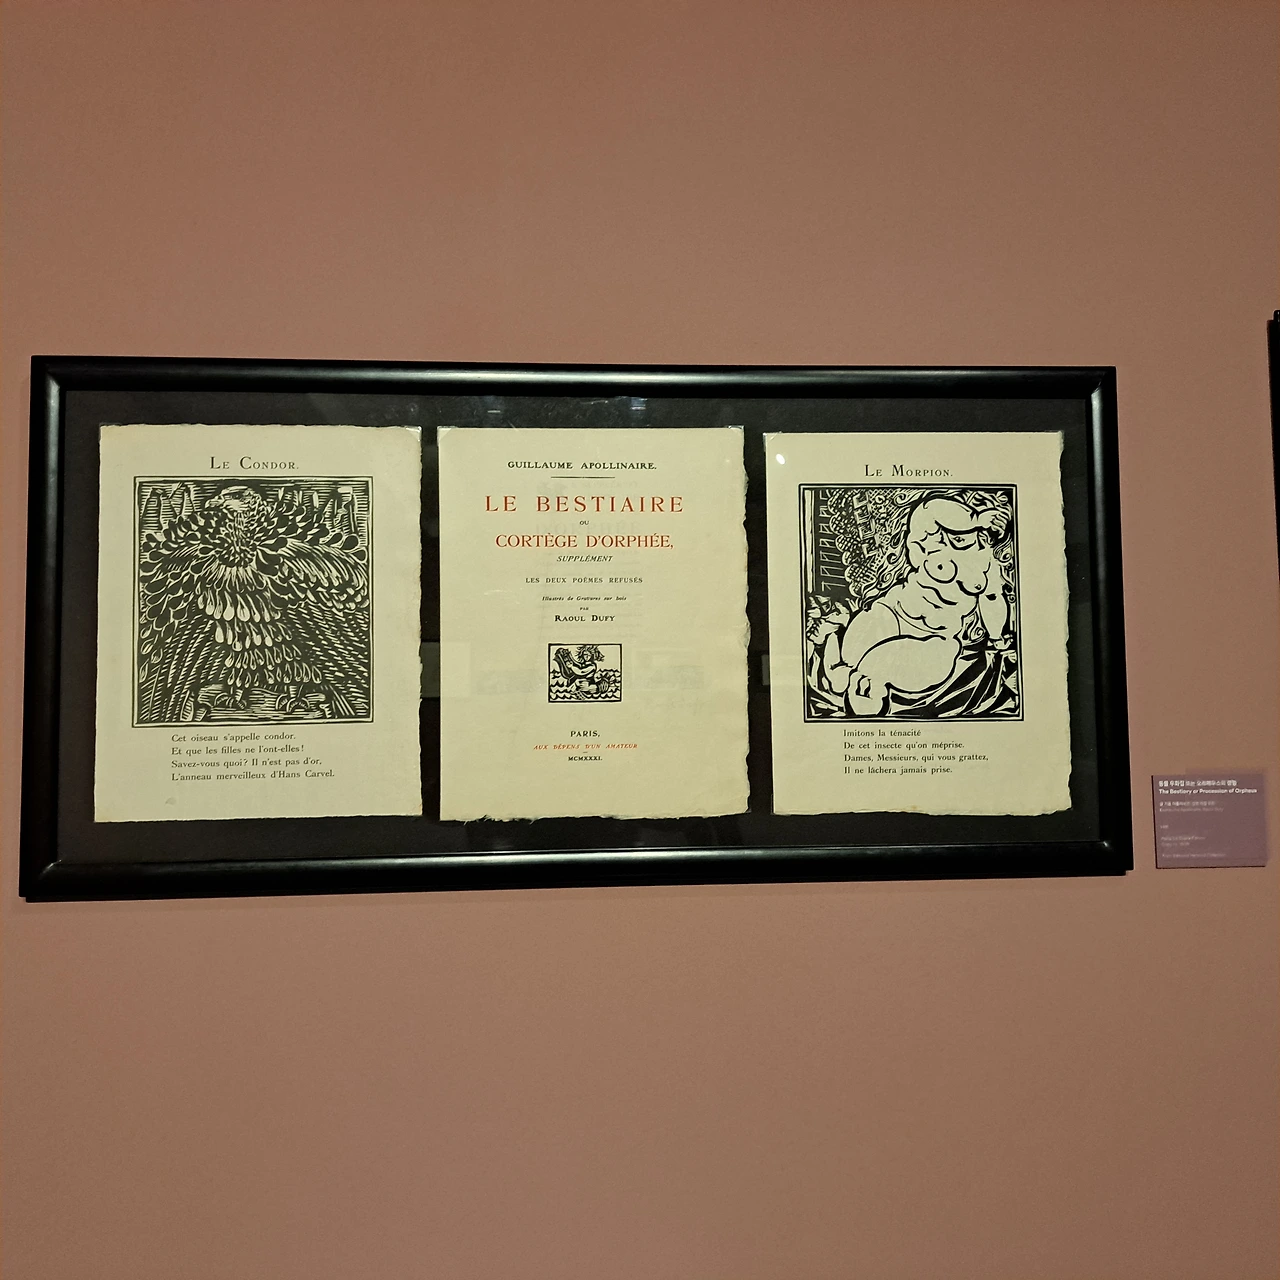 LE CONDOR.
Cet oiseau s'appelle condor.
Et que les filles ne l'ont-elles !
Savez-vous quoi ? Il n'est pas d'or,
L'anneau merveilleux d'Hans Carvel.
GUILLAUME APOLLINAIRE.
LE BESTIAIRE
OU
CORTÈGE D'ORPHÉE,
SUPPLÉMENT
LES DEUX POÈMES REFUSÉS
Illustrés de Gravures sur bois
PAR
RAOUL DUFY
PARIS,
AUX DÉPENS D'UN AMATEUR
MCMXXXI.
LE MORPION.
Imitons la ténacité
De cet insecte qu'on méprise.
Dames, Messieurs, qui vous grattez,
Il ne lâchera jamais prise.
동물 우화집 또는 오르페우스의 행렬
The Bestiary or Procession of Orpheus